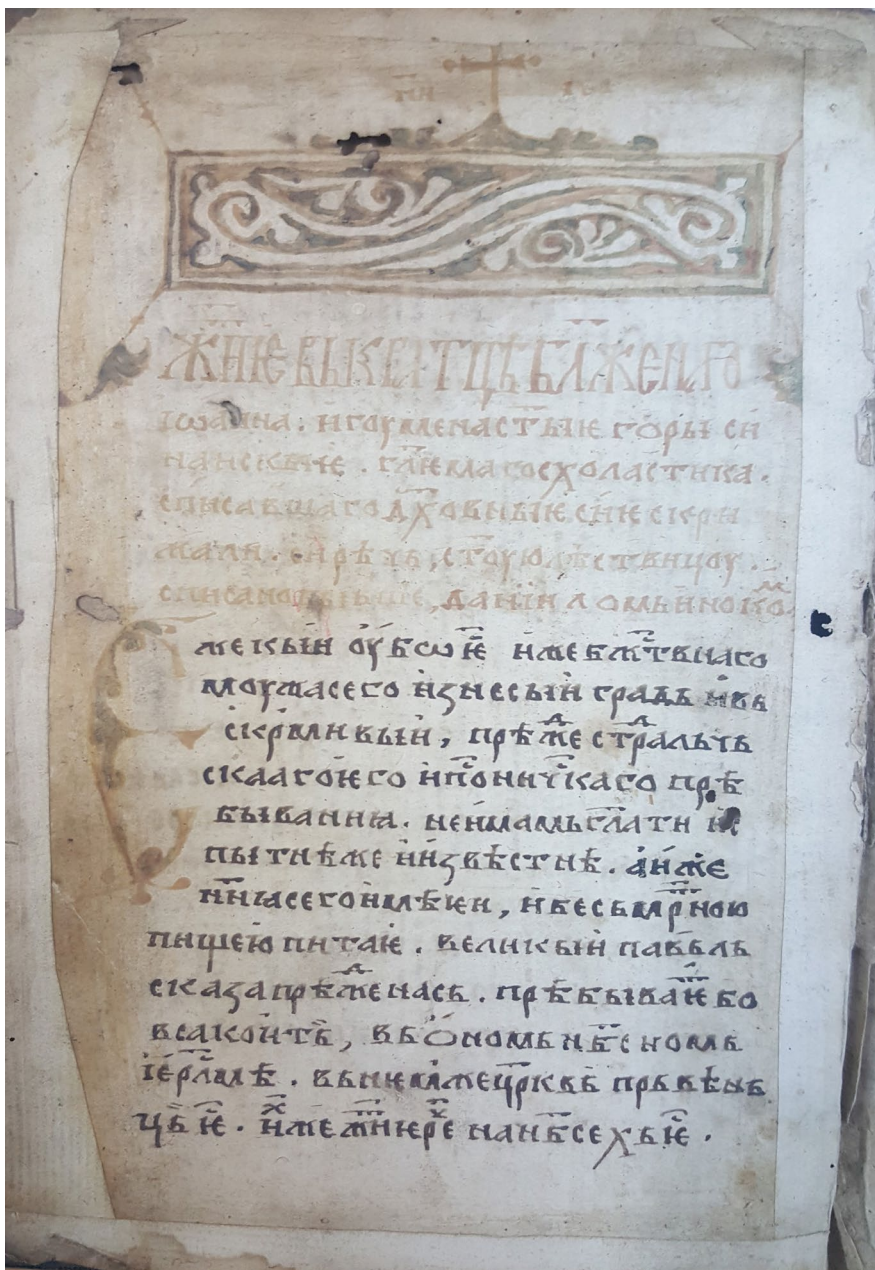 Житїе вькратцѣ блаженаго
іѡанна. игоумена с͠тыѥ горы си
наискыѥ. гл͠ѥмаго схоластика.
списавшаго дх͠овныѥ сиѥ скри
жали. сирѣчь, ст͠оую лѣствицоу.
списано данїиломь инокѡм
же кыи оубѡ ѥ҃ иже бж҃твнаго
моужа сего изнесыи градь и вь
скрьмивыи, прѣжⷣе страⷣальчь
скааго ѥго и поничⷭкаго прѣ
быванїа. не имамь гл҃ати
пытнѣ же и извѣстнѣ. а иже
нн҃ꙗ сего имѣѥи, и бесьмрⷮною
пищею питаѥ. великыи павьль
сказа прѣжⷣе нась. прѣбываѥⷮ бо
вь ѻномь нбⷭ҃номь
іерⷭ҃лмѣ. вь нѥмже цр҃квь прьвѣнь
ць ѥ҃. ихже жиⷮѥ на нб҃сехь ѥ҃.